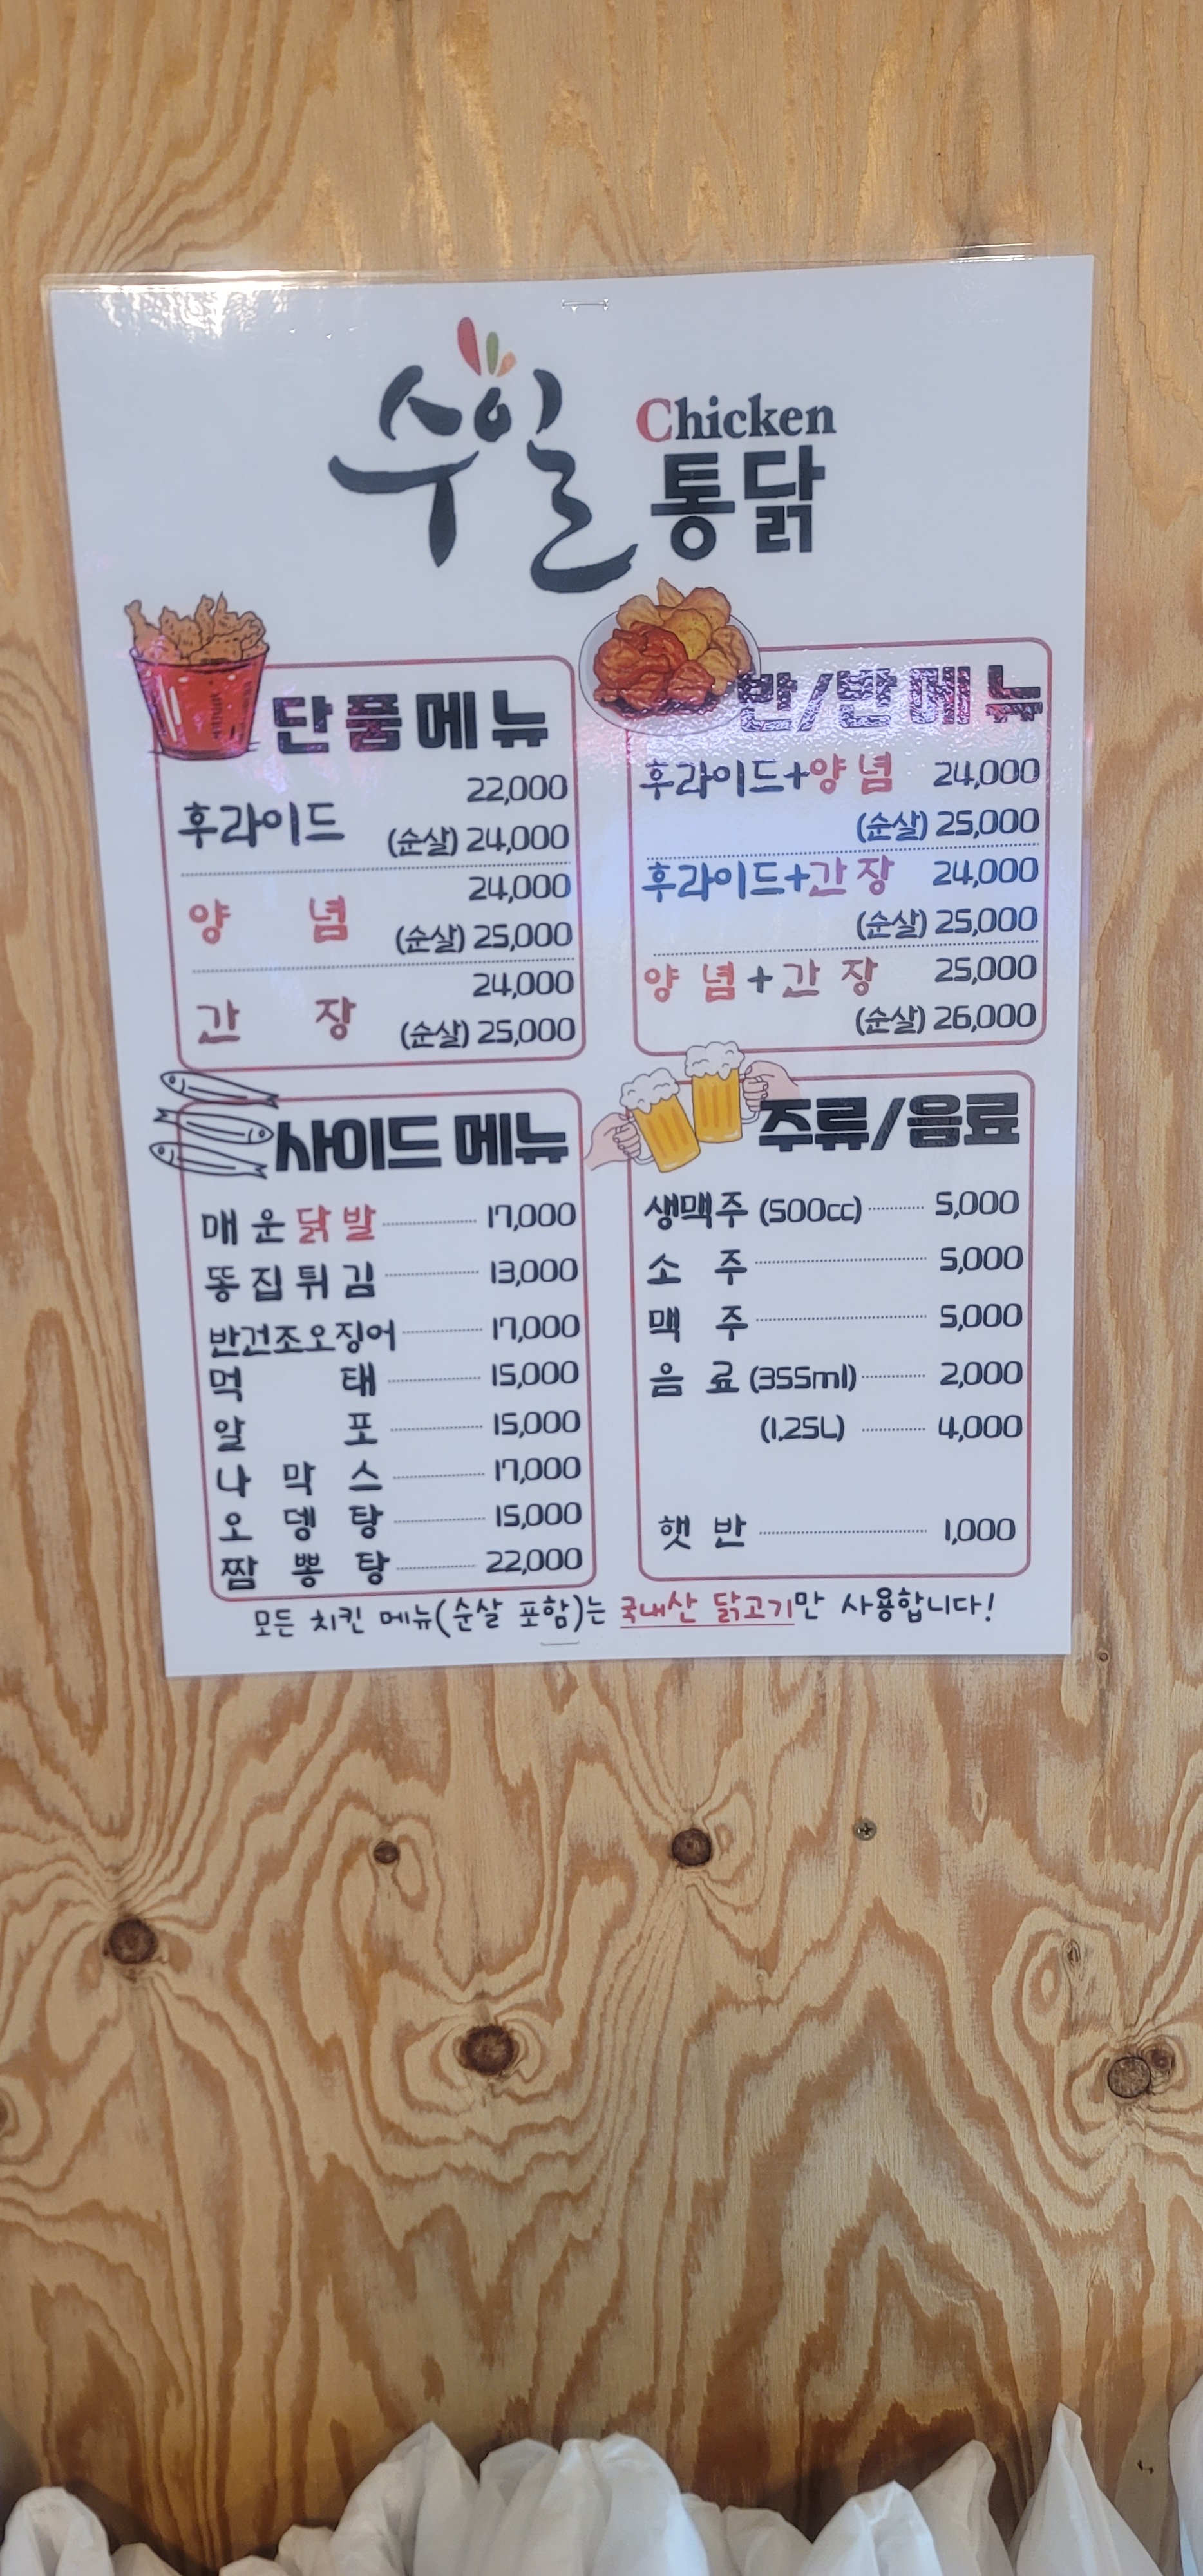 수일
Chicken
통닭
단품메뉴
후라이드 22,000
(순살) 24,000
양념 24,000
(순살) 25,000
간장 24,000
(순살) 25,000
반/반메뉴
후라이드+양념 24,000
(순살) 25,000
후라이드+간장 24,000
(순살) 25,000
양념+간장 25,000
(순살) 26,000
사이드 메뉴
매운닭발 17,000
똥집튀김 13,000
반건조오징어 17,000
먹태 15,000
알포 15,000
나막스 17,000
오뎅탕 15,000
짬뽕탕 22,000
주류/음료
생맥주 (500cc) 5,000
소주 5,000
맥주 5,000
음료 (355ml) 2,000
(1.25L) 4,000
햇반 1,000
모든 치킨 메뉴(순살 포함)는 국내산 닭고기만 사용합니다!